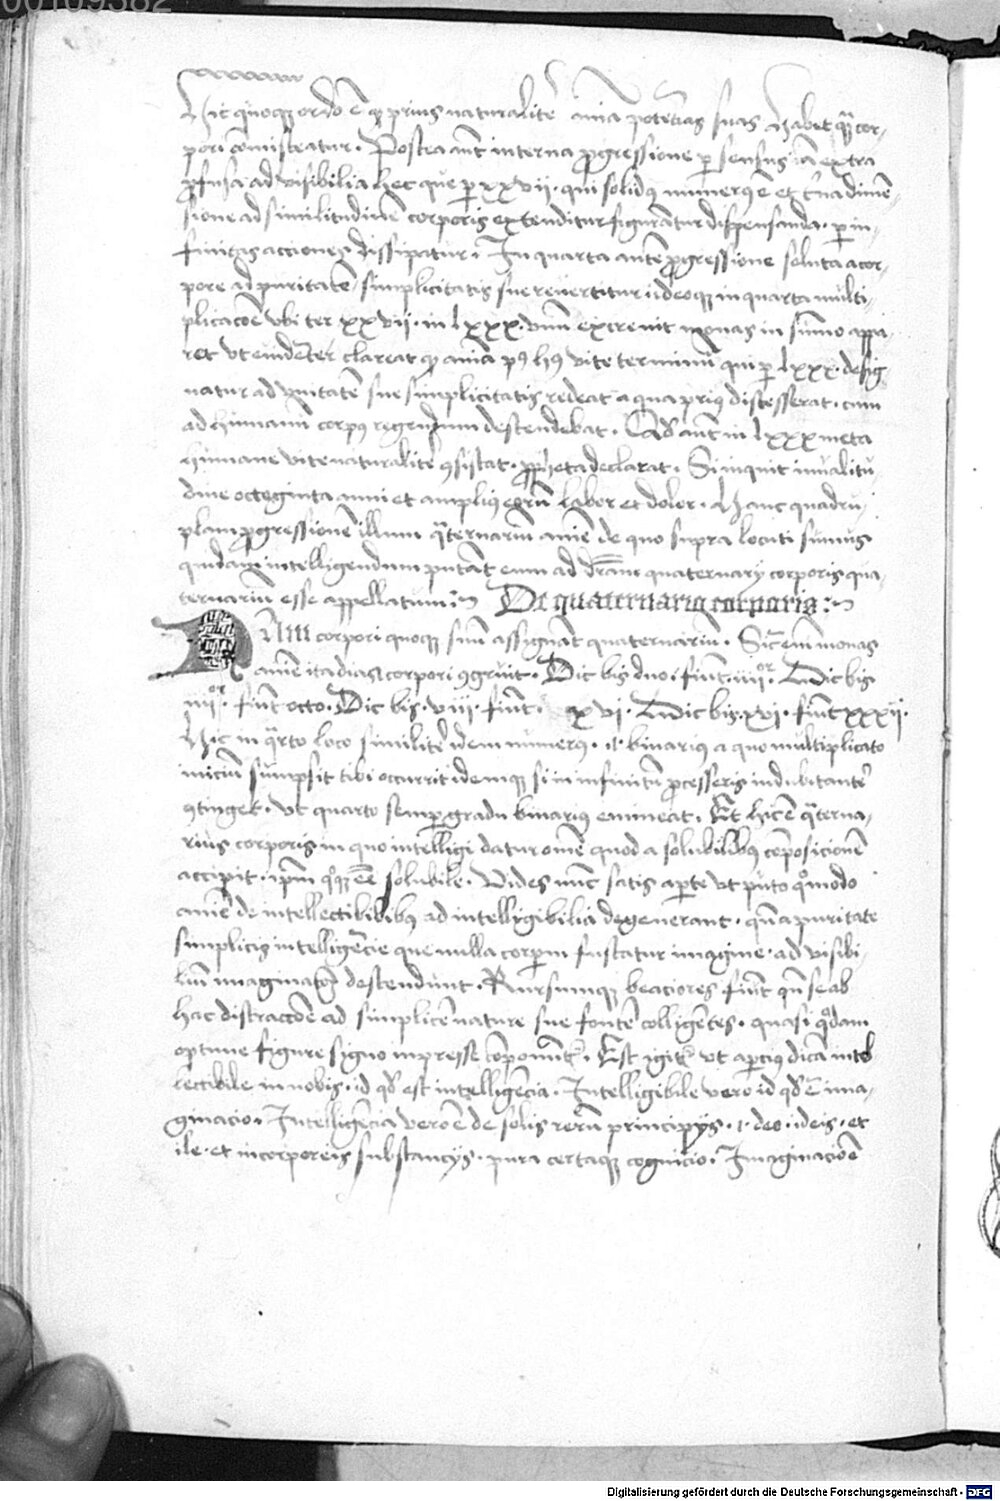 00109382
Hic quoqꝫ ordo ē qꝫ prius naturalit̄ aīa potētias suas habet qꝫ̄ cor-
pori cōmisceatur. Postea aūt interna ꝓgressione ꝑ sensus iā extra
ꝓfusa ad visibilia hec que ꝑ xxvii. qui solidꝰ numerꝰ ē et t̄na dimē-
sione ad similitudinē corporis extenditur figurātur dispensanda. ꝑ in-
finitas acciones dissipatur. In quarta autē ꝓgressione soluta a cor-
pore ad puritatē simplicitatis sue reuertitur ideoqꝫ in quarta multi-
plicacōe vbi ter xxvii. in lxxx. vnū excreuit monas in sūmo appa-
ret vt euidēter clareat qꝫ aīa pꝰ hꝰ vite terminū qui ꝑ lxxx. desig
natur ad vnitatē sue simplicitatis redeat a qua priꝰ discesserat. cum
ad humanū corpꝰ regendum descendebat. Qd̄ aūt in lxxx meta
humane vite naturalit̄ ꝯsistat. ꝓpheta declarat. Si inquit in valitu
dine octoginta anni et ampliꝰ eorū labor et dolor. Hanc quadru-
plam ꝓgressionē illum q̄ternariū aīe de quo supra locuti sumus
quidam intelligendum putāt eum ad dr̄am quaternarij corporis qua-
ternariū esse appellatum. De quaternario corporis.
Nam corpori quoqꝫ suū assignāt quaternariū. Sic̄ enī monas
anīe ita dias corpori ꝯgruit. Dic bis duo. fiūt. iiiiᵒʳ. Dic bis
iiiiᵒʳ. fiūt octo. Dic bis. viii. fiūt. xvi. Dic bis. xvi. fiūt xxxii.
Hic in q̄rto loco similit̄ idem numerꝰ. i. binariꝰ a quo multiplicato
iniciū sumpsit tibi occurrit idemqꝫ si in infinitū ꝓcesseris indubitant̄
ꝯtinget. vt quarto semꝑ gradu binariꝰ emineat. Et hic ē q̄terna-
rius corporis in quo intelligi datur omē quod a solubilibꝰ cōposicionē
accipit. ipm̄ qꝫ eē solubile. Vides nūc satis aperte vt puto qᵒmodo
anīe de intellectibilibꝰ ad intelligibilia degenerant. qn̄ a puritate
simplicis intelligēcie que nulla corporum fuscatur imagine. ad visibi-
liū imaginacōem descendunt. Rursumqꝫ beaciores fiūt qn̄ se ab
hac distraccōe ad simplicē nature sue fontē colligētes. quasi qᵒdam
optime figure signo impresse cōponūt̄. Est igit̄ vt aꝑcius dicā intel
lectibile in nobis. id qd̄ est intelligēcia. Intelligibile vero id qd̄ ē ima-
ginacio. Intelligēcia vero ē de solis rerū principijs. i. deo. ideis. et
ile. et incorporeis substancijs. pura certaqꝫ cognicio. Imaginacio ē
Digitalisierung gefördert durch die Deutsche Forschungsgemeinschaft - DFG